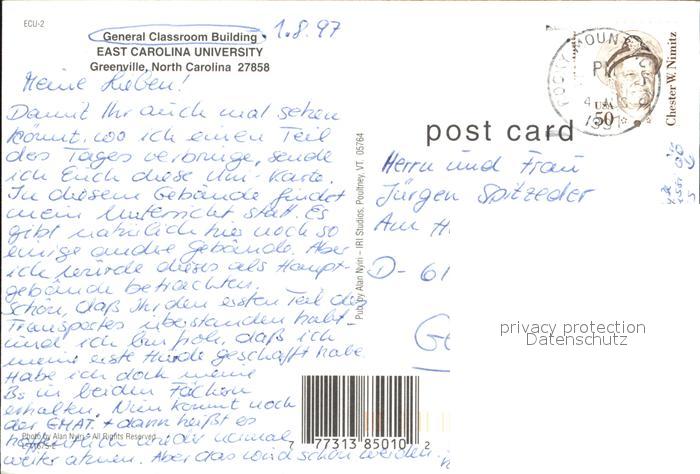 ECU-2
General Classroom Building
1.8.97
EAST CAROLINA UNIVERSITY
Greenville, North Carolina 27858
Meine Lieben!
Damit Ihr auch mal sehen
könnt, wo ich einen Teil
des Tages verbringe, sende
ich Euch diese Uni-Karte.
In diesem Gebäude findet
mein Unterricht statt. Es
gibt natürlich hier noch so
einige andre Gebäude. Aber
ich würde dieses als Haupt-
gebäude betrachten.
Schön, daß Ihr den ersten Teil des
Transportes überstanden habt
und ich bin froh, daß ich
meine erste Hürde geschafft habe.
Habe ich doch meine
Bs in beiden Fächern
erhalten. Nun kommt noch
der GMAT + dann heißt es
hoffentlich wieder normal
weiter atmen. Aber das wird schon werden.
Photo by Alan Nyiri - All Rights Reserved
Pub by Alan Nyiri - IRI Studios, Poultney, VT. 05764
7 77313 85010 2
post card
ROCKY MOUNT
PM
USA
50
Chester W. Nimitz
Herrn und Frau
Jürgen Spitzeder
Am H
D- 61
privacy protection
Datenschutz